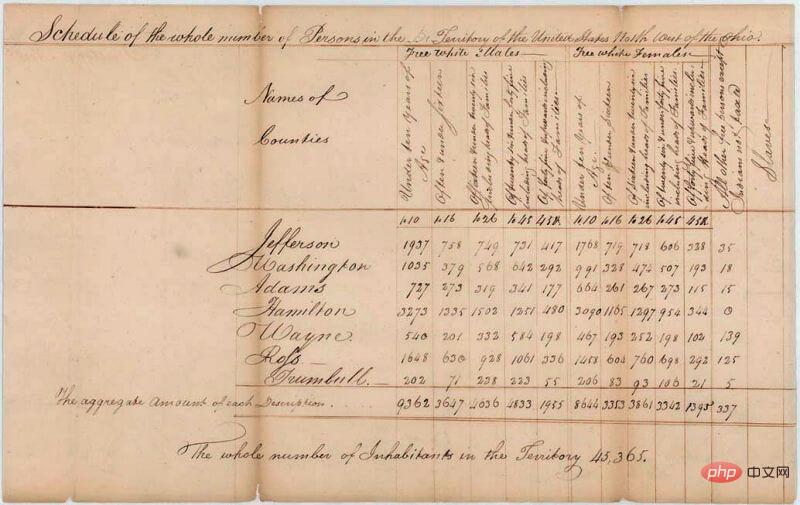 Schedule of the whole number of Persons in the Territory of the United States North West of the Ohio.
Free white Males Free white Females
Names of
Counties
Under ten Years of Age
Of ten & under sixteen
Of sixteen & under twenty six including heads of Families
Of twenty six & under forty five including heads of Families
Of forty five & upwards including heads of Families
Under ten Years of Age
Of ten & under Sixteen
Of Sixteen & under twenty six including heads of Families
Of twenty six & under forty five including heads of Families
Of forty five & upwards including heads of Families
All other free persons except Indians not taxed
Slaves
to 10 to 16 to 26 to 45 45& to 10 to 16 to 26 to 45 45&
Jefferson 1937 758 749 731 417 1768 719 718 606 328 35
Washington 1035 379 568 642 292 991 328 474 507 193 18
Adams 727 273 319 341 177 664 261 267 273 115 15
Hamilton 3273 1335 1502 1251 480 3090 1165 1297 954 344 0
Wayne 540 201 332 584 198 467 193 252 198 102 139
Ross 1648 630 928 1061 336 1458 604 760 698 292 125
Trumbull 202 71 238 223 55 206 83 93 106 21 5
The aggregate amount of each Description. 9362 3647 4636 4833 1955 8644 3353 3861 3342 1395 337
The whole number of Inhabitants in the Territory 45,365.
php 中文网